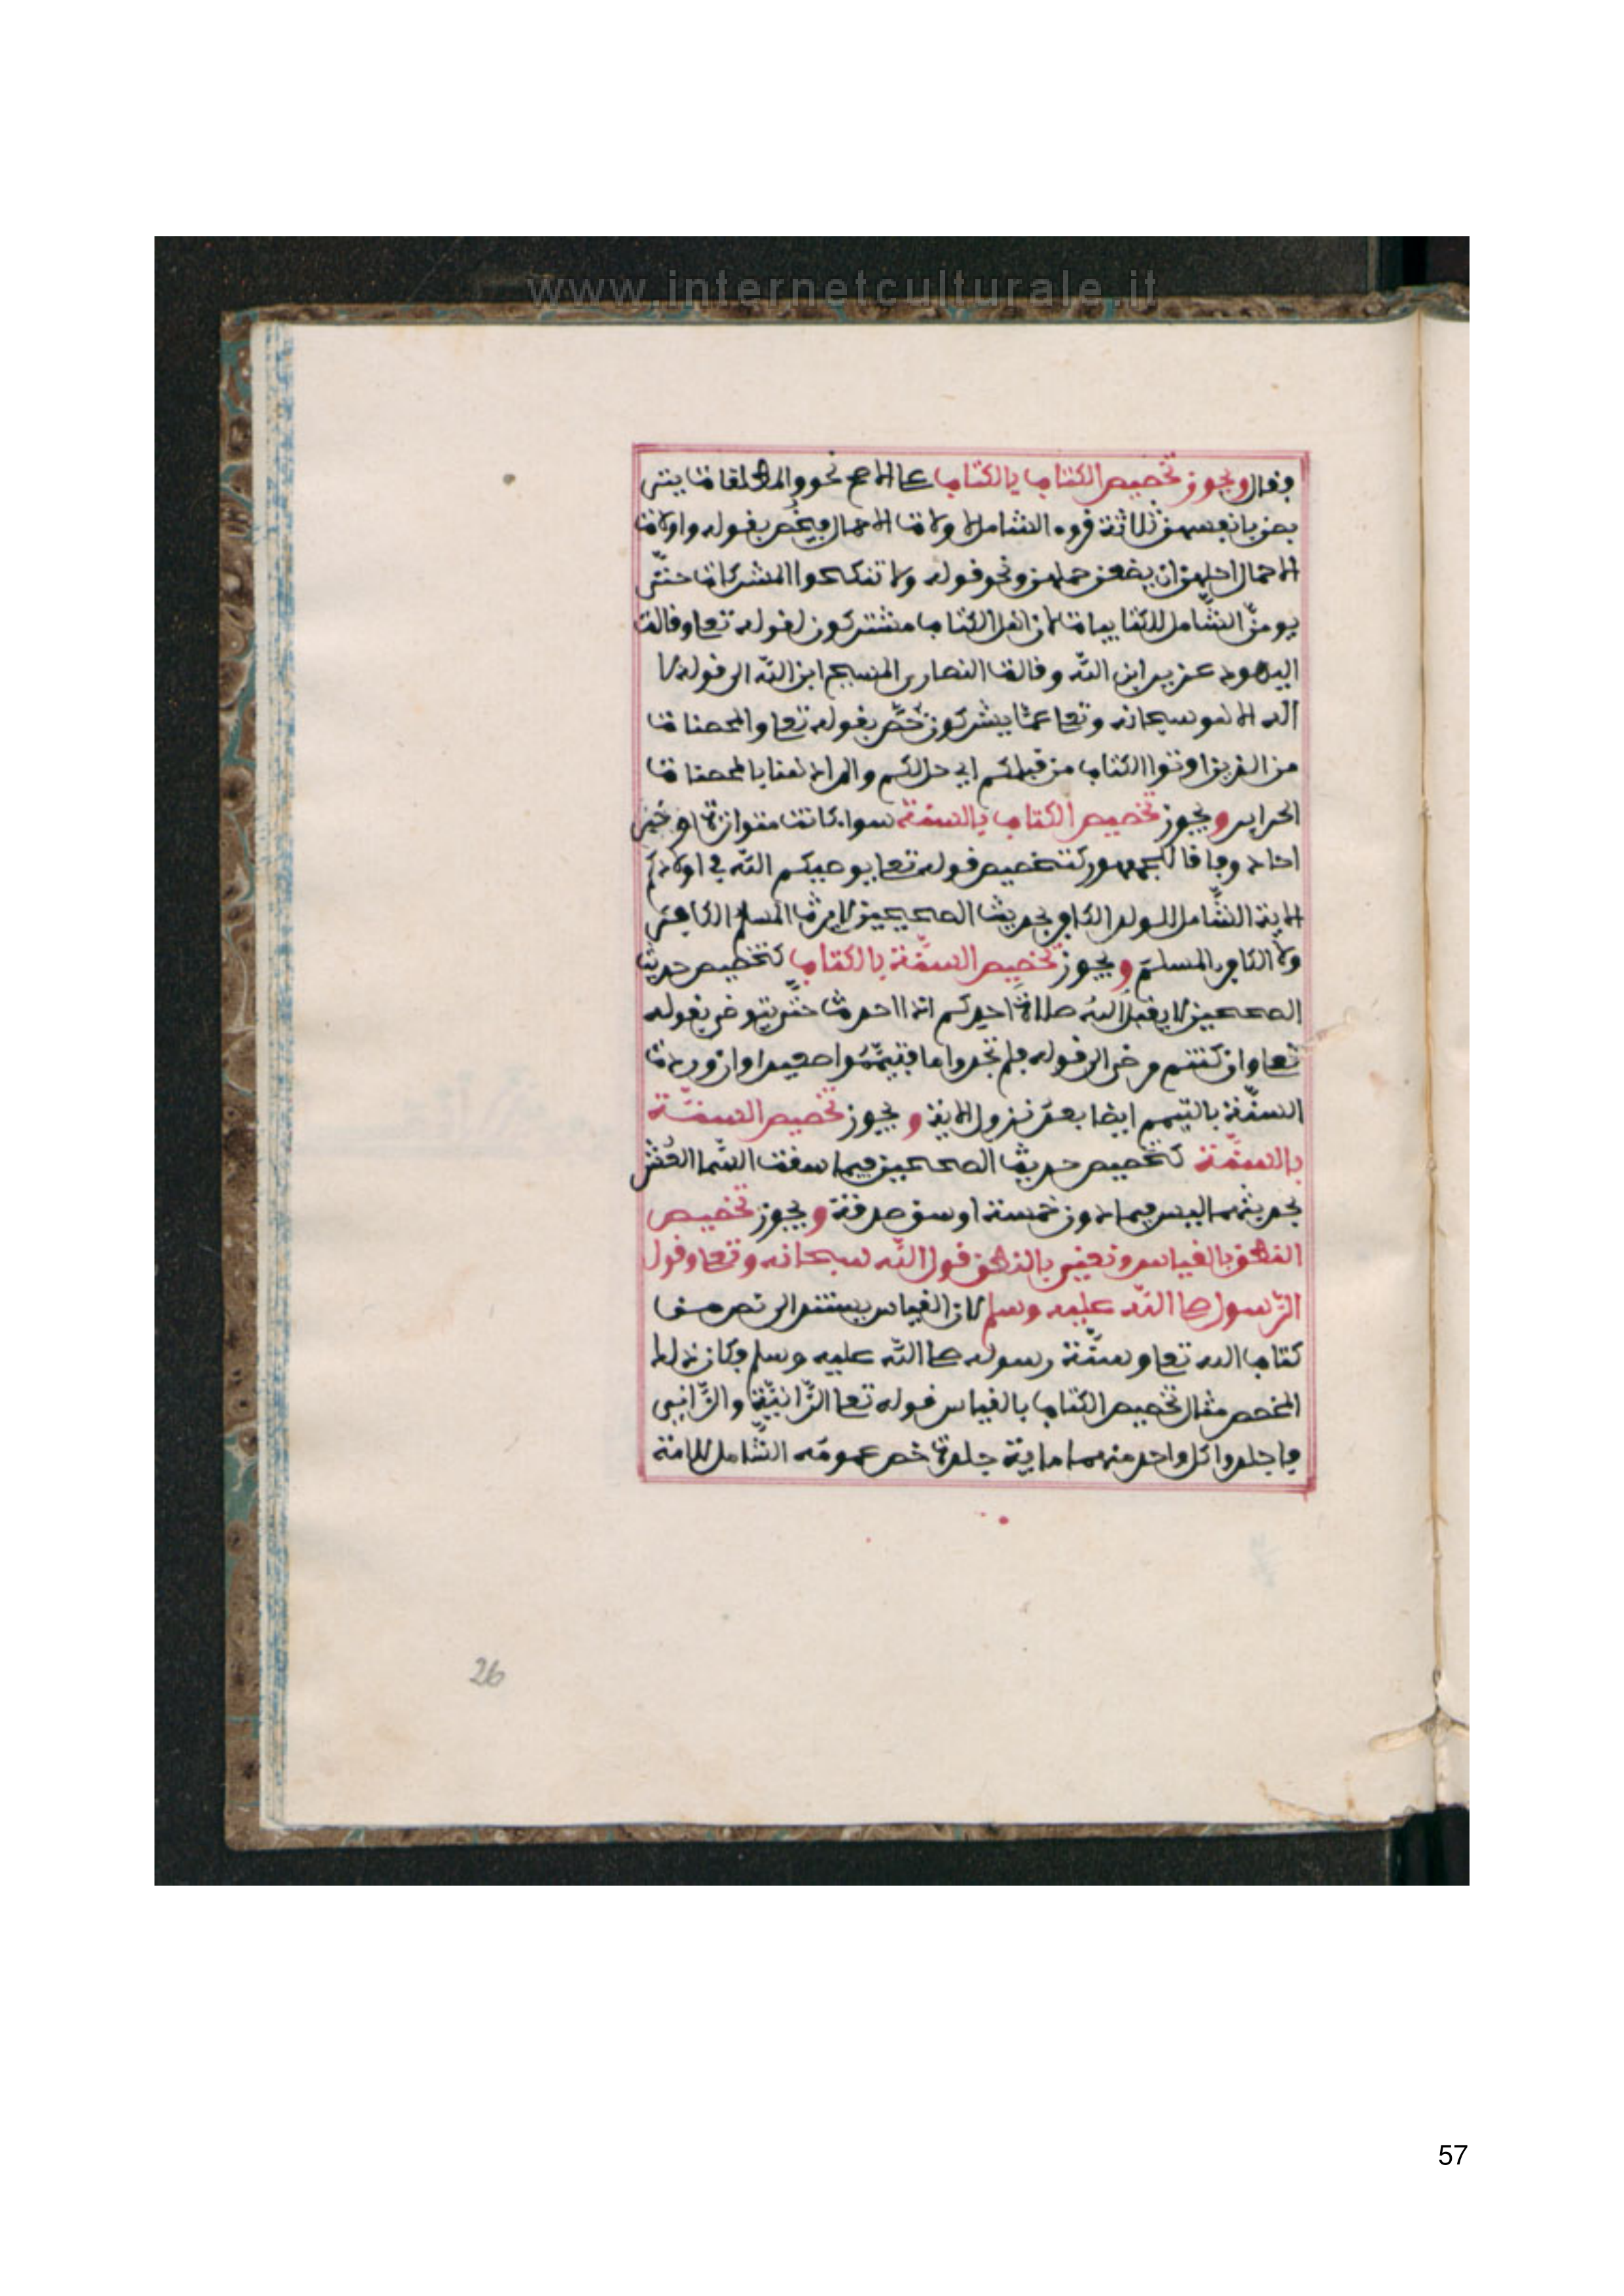 www.internetculturale.it
فقال ويجوز تخصيص الكتاب بالكتاب على الاصح نحو والمطلقات يتر
بصن بانفسهن ثلاثة قروء الشامل لاولات الاحمال فيخُص بقوله واولات
الاحمال اجلهن ان يضعن حملهن ونحو قوله ولا تنكحوا المشركات حتّى
يومنّ الشّامل للكتابيات لان اهل الكتاب مشتركون لقوله تعا وقالت
اليهود عزير ابن الله وقالت النصارى المسيح ابن الله الى قوله لا
اله الا هو سبحانه وتعا عمّا يشركون خصّ بقوله تعا والمحصنات
من الذين اوتوا الكتاب من قبلكم اي حل لكم والمراد هنا بالمحصنات
الحراير ويجوز تخصيص الكتاب بالسنّة سوا كانت متواترة او خبر
احاد وفاقا للجمهور كتخصيص قوله تعا يوصيكم الله في اولادكم
الاية الشّامل للولد الكافر بحديث الصحيحين لا يرث المسلم الكافر
ولا الكافر المسلم ويجوز تخصيص السنّة بالكتاب كتخصيص حديث
الصحيحين لا يقبل الله صلاة احدكم اذا احدث حتّى يتوضى بقوله
تعا وان كنتم مرضى الى قوله فلم تجدوا ما فتيمّموا صعيدا وان وردت
السنّة بالتيمم ايضا بعد نزول الاية ويجوز تخصيص السنّة
بالسنّة كتخصيص حديث الصحيحين فيما سقت السّما العُشر
بحديثهما ليس فيما دون خمسة اوسق صدقة ويجوز تخصيص
النطق بالقياس ونعني بالنطق قول الله سبحانه وتعا وقول
الرّسول صلى الله عليه وسلم لان القياس يستند الى نص من
كتاب الله تعا وسنّة رسوله صلى الله عليه وسلم فكان ذلك
المخصص مثال تخصيص الكتاب بالقياس قوله تعا الزّانيّة والزّاني
فاجلدوا كل واحد منهما ماية جلدة خص عمومه الشّامل للامة
26
57